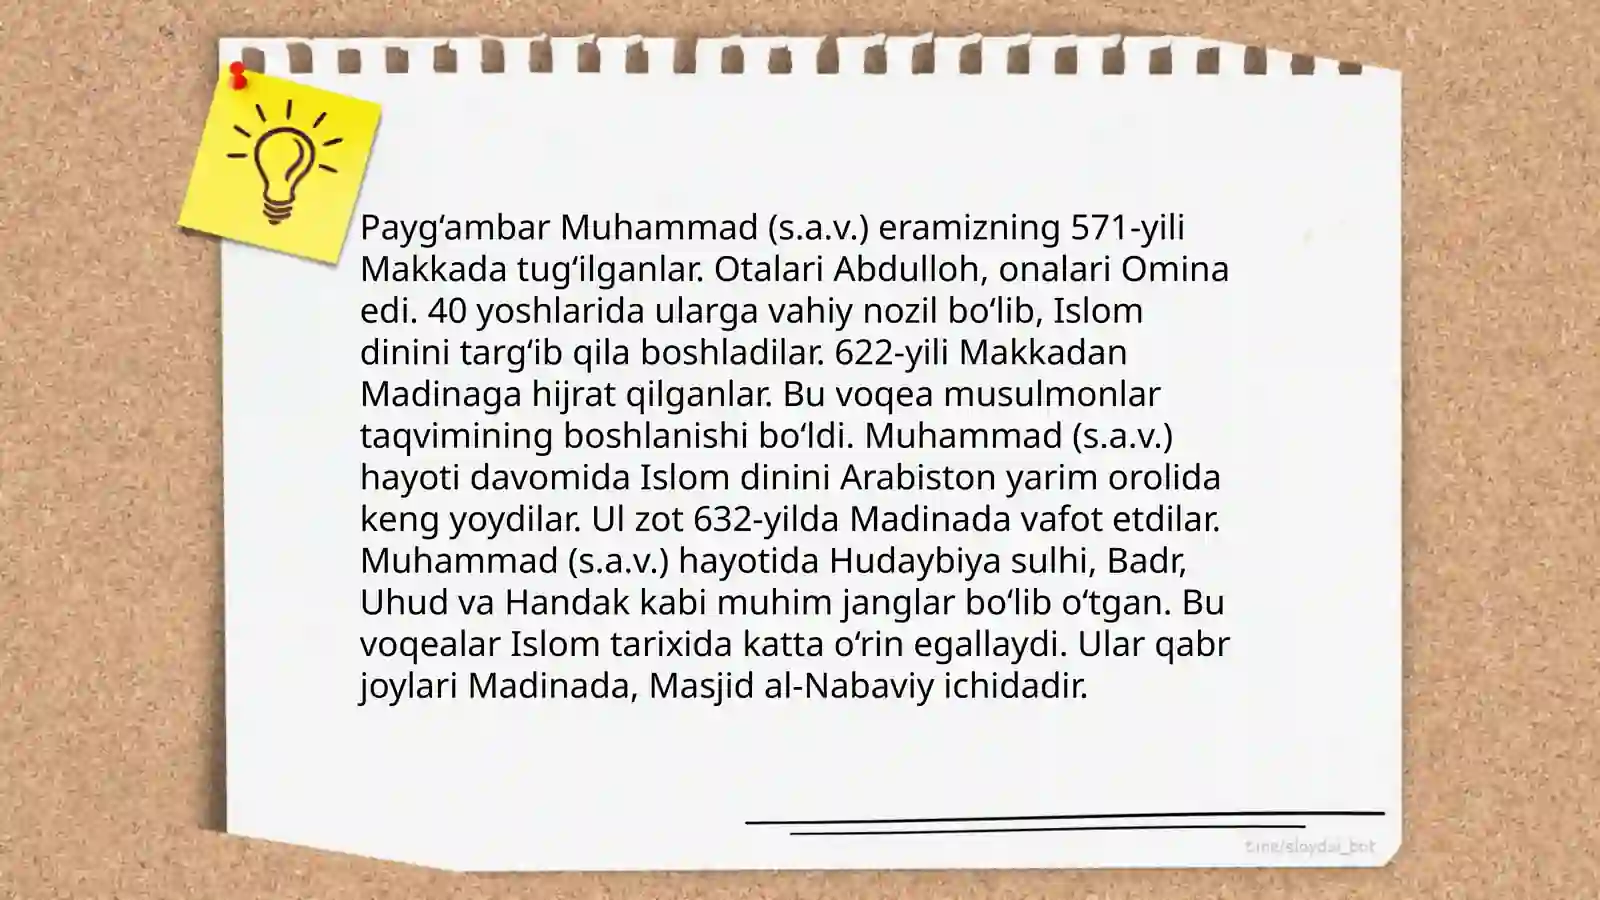 Payg‘ambar Muhammad (s.a.v.) eramizning 571-yili
Makkada tug‘ilganlar. Otalari Abdulloh, onalari Omina
edi. 40 yoshlarida ularga vahiy nozil bo‘lib, Islom
dinini targ‘ib qila boshladilar. 622-yili Makkadan
Madinaga hijrat qilganlar. Bu voqea musulmonlar
taqvimining boshlanishi bo‘ldi. Muhammad (s.a.v.)
hayoti davomida Islom dinini Arabiston yarim orolida
keng yoydilar. Ul zot 632-yilda Madinada vafot etdilar.
Muhammad (s.a.v.) hayotida Hudaybiya sulhi, Badr,
Uhud va Handak kabi muhim janglar bo‘lib o‘tgan. Bu
voqealar Islom tarixida katta o‘rin egallaydi. Ular qabr
joylari Madinada, Masjid al-Nabaviy ichidadir.